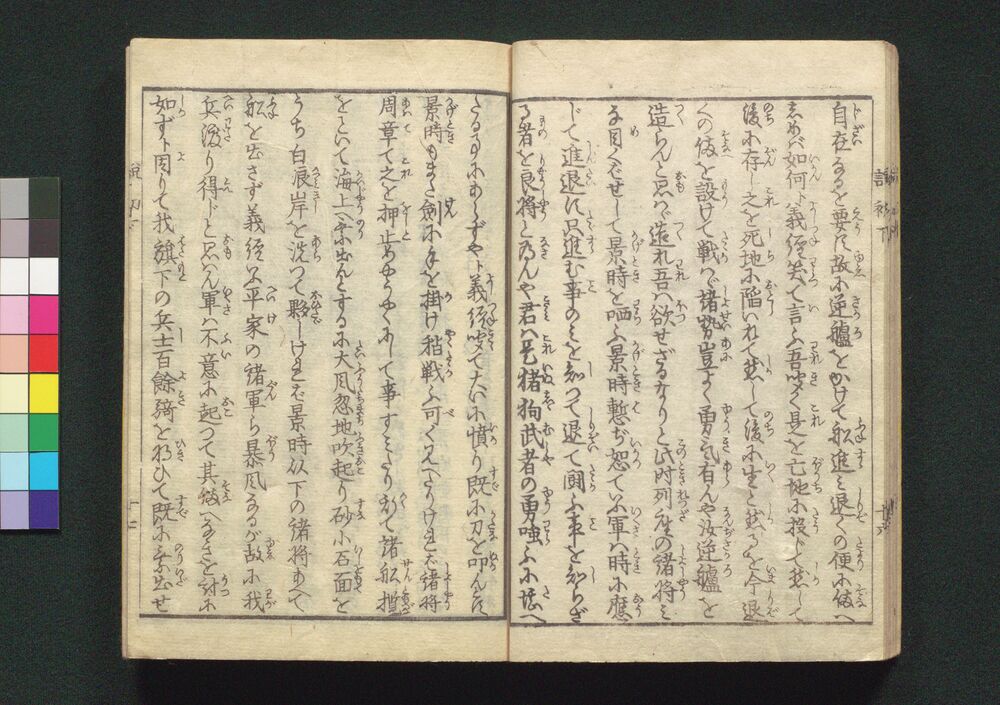 自在なるを要す故に逆艫をかけて船進み退くの便に備へ
玉わバ如何ト義経笑て言ふ吾聞く是を亡地に投じて然して
後に存し之を死地に陥いれて然して後に生と然るを今退
くの備を設けて戦ハゞ諸勢豈よく勇気有んや汝逆艫を
造らんと思ハゞ造れ吾ハ欲せざるなりと此时列座の諸将ミ
な目くばせして景時を哂ふ景時慙ぢ恕てい軍ハ時に應
じて進退す只進む事のミを知つて退て闘ふ事を知らざ
る者を良将と為んや君ハ是猪狗武者の勇嗤ふに堪へ
たるにあらずやト義経聞て大に憤り既に刀を叩んとす
景時もまた劍に手を掛け稭戦ふ可く見へたりけれバ諸将
周章て之を押止めやうやくにして事すミたり扨て諸船攏
をといて海上へ乗出んとするに大风忽地吹起り砂小石面を
うち白浪岸を洗つて夥しけれバ景時以下の諸将あへて
船を出さず義経ハ平家の諸軍ら暴风なるが故に我
兵渡り得じと思ハん軍ハ不意に起つて其備へなきを討に
如ずト因りて我旗下の兵士百餘騎を将ひて既に乗出せ